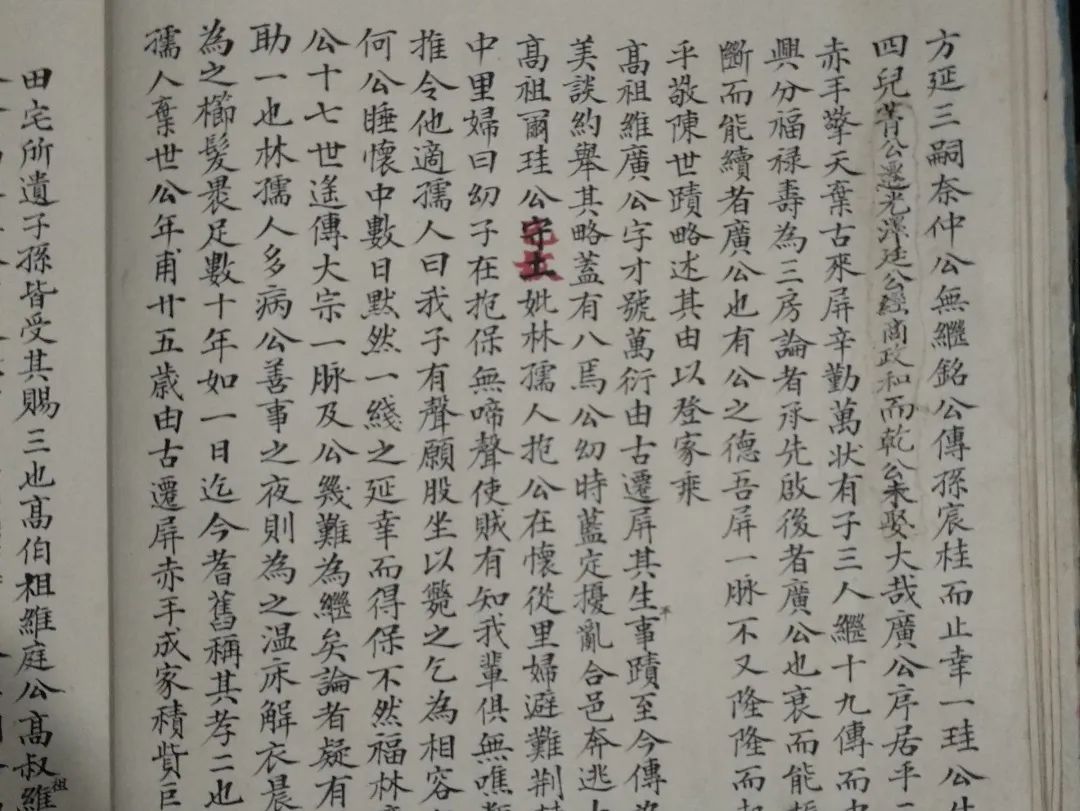 方延三嗣奈仲公無繼銘公傳孫宸桂而止幸一珪公生
四兒菁公遷光澤廷公經商政和而乾公未娶大哉廣公序居乎
赤手擎天棄古來屏辛勤萬状有子三人繼十九傳而
興分福禄壽為三房論者承先啟後者廣公也衰而能
斷而能續者廣公也有公之德吾屏一脉不又隆隆而
乎敬陳世蹟略述其由以登家乘
高祖維廣公字才號萬衍由古遷屏其生平事蹟至今傳為
美談約舉其略蓋有八焉公幼時藍定擾亂合邑奔逃
高祖爾珪公守土妣林孺人抱公在懷從里婦避難荆
中里婦曰幼子在抱保無啼聲使賊有知我輩俱無噍
推令他適孺人曰我子有聲願股坐以斃之乞為相容
何公睡懷中數日默然一綫之延幸而得保不然福林
公十七世遙傳大宗一脉及公幾難為繼矣論者疑有
助一也林孺人多病公善事之夜則為之温床解衣晨
為之櫛髮裹足數十年如一日迄今耆舊稱其孝二也
孺人棄世公年甫廿五歲由古遷屏赤手成家積貲巨
田宅所遺子孫皆受其賜三也高伯祖維庭公高叔祖維